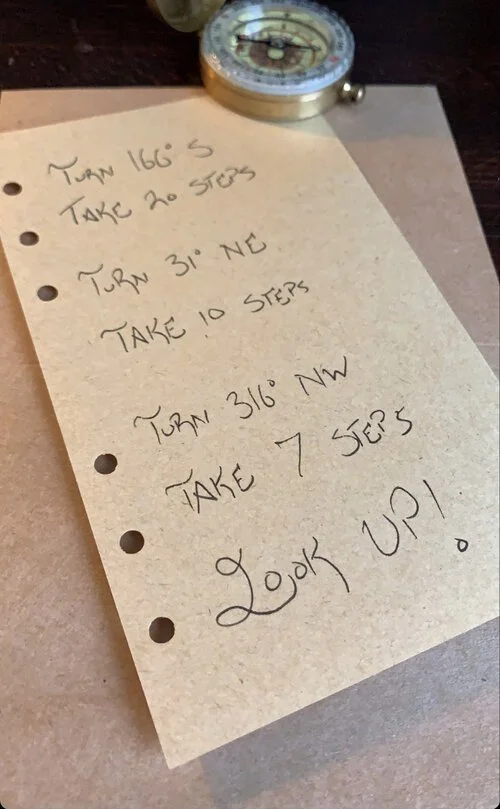 TURN 166° S
TAKE 20 STEPS
TURN 31° NE
TAKE 10 STEPS
TURN 316° NW
TAKE 7 STEPS
LOOK UP!